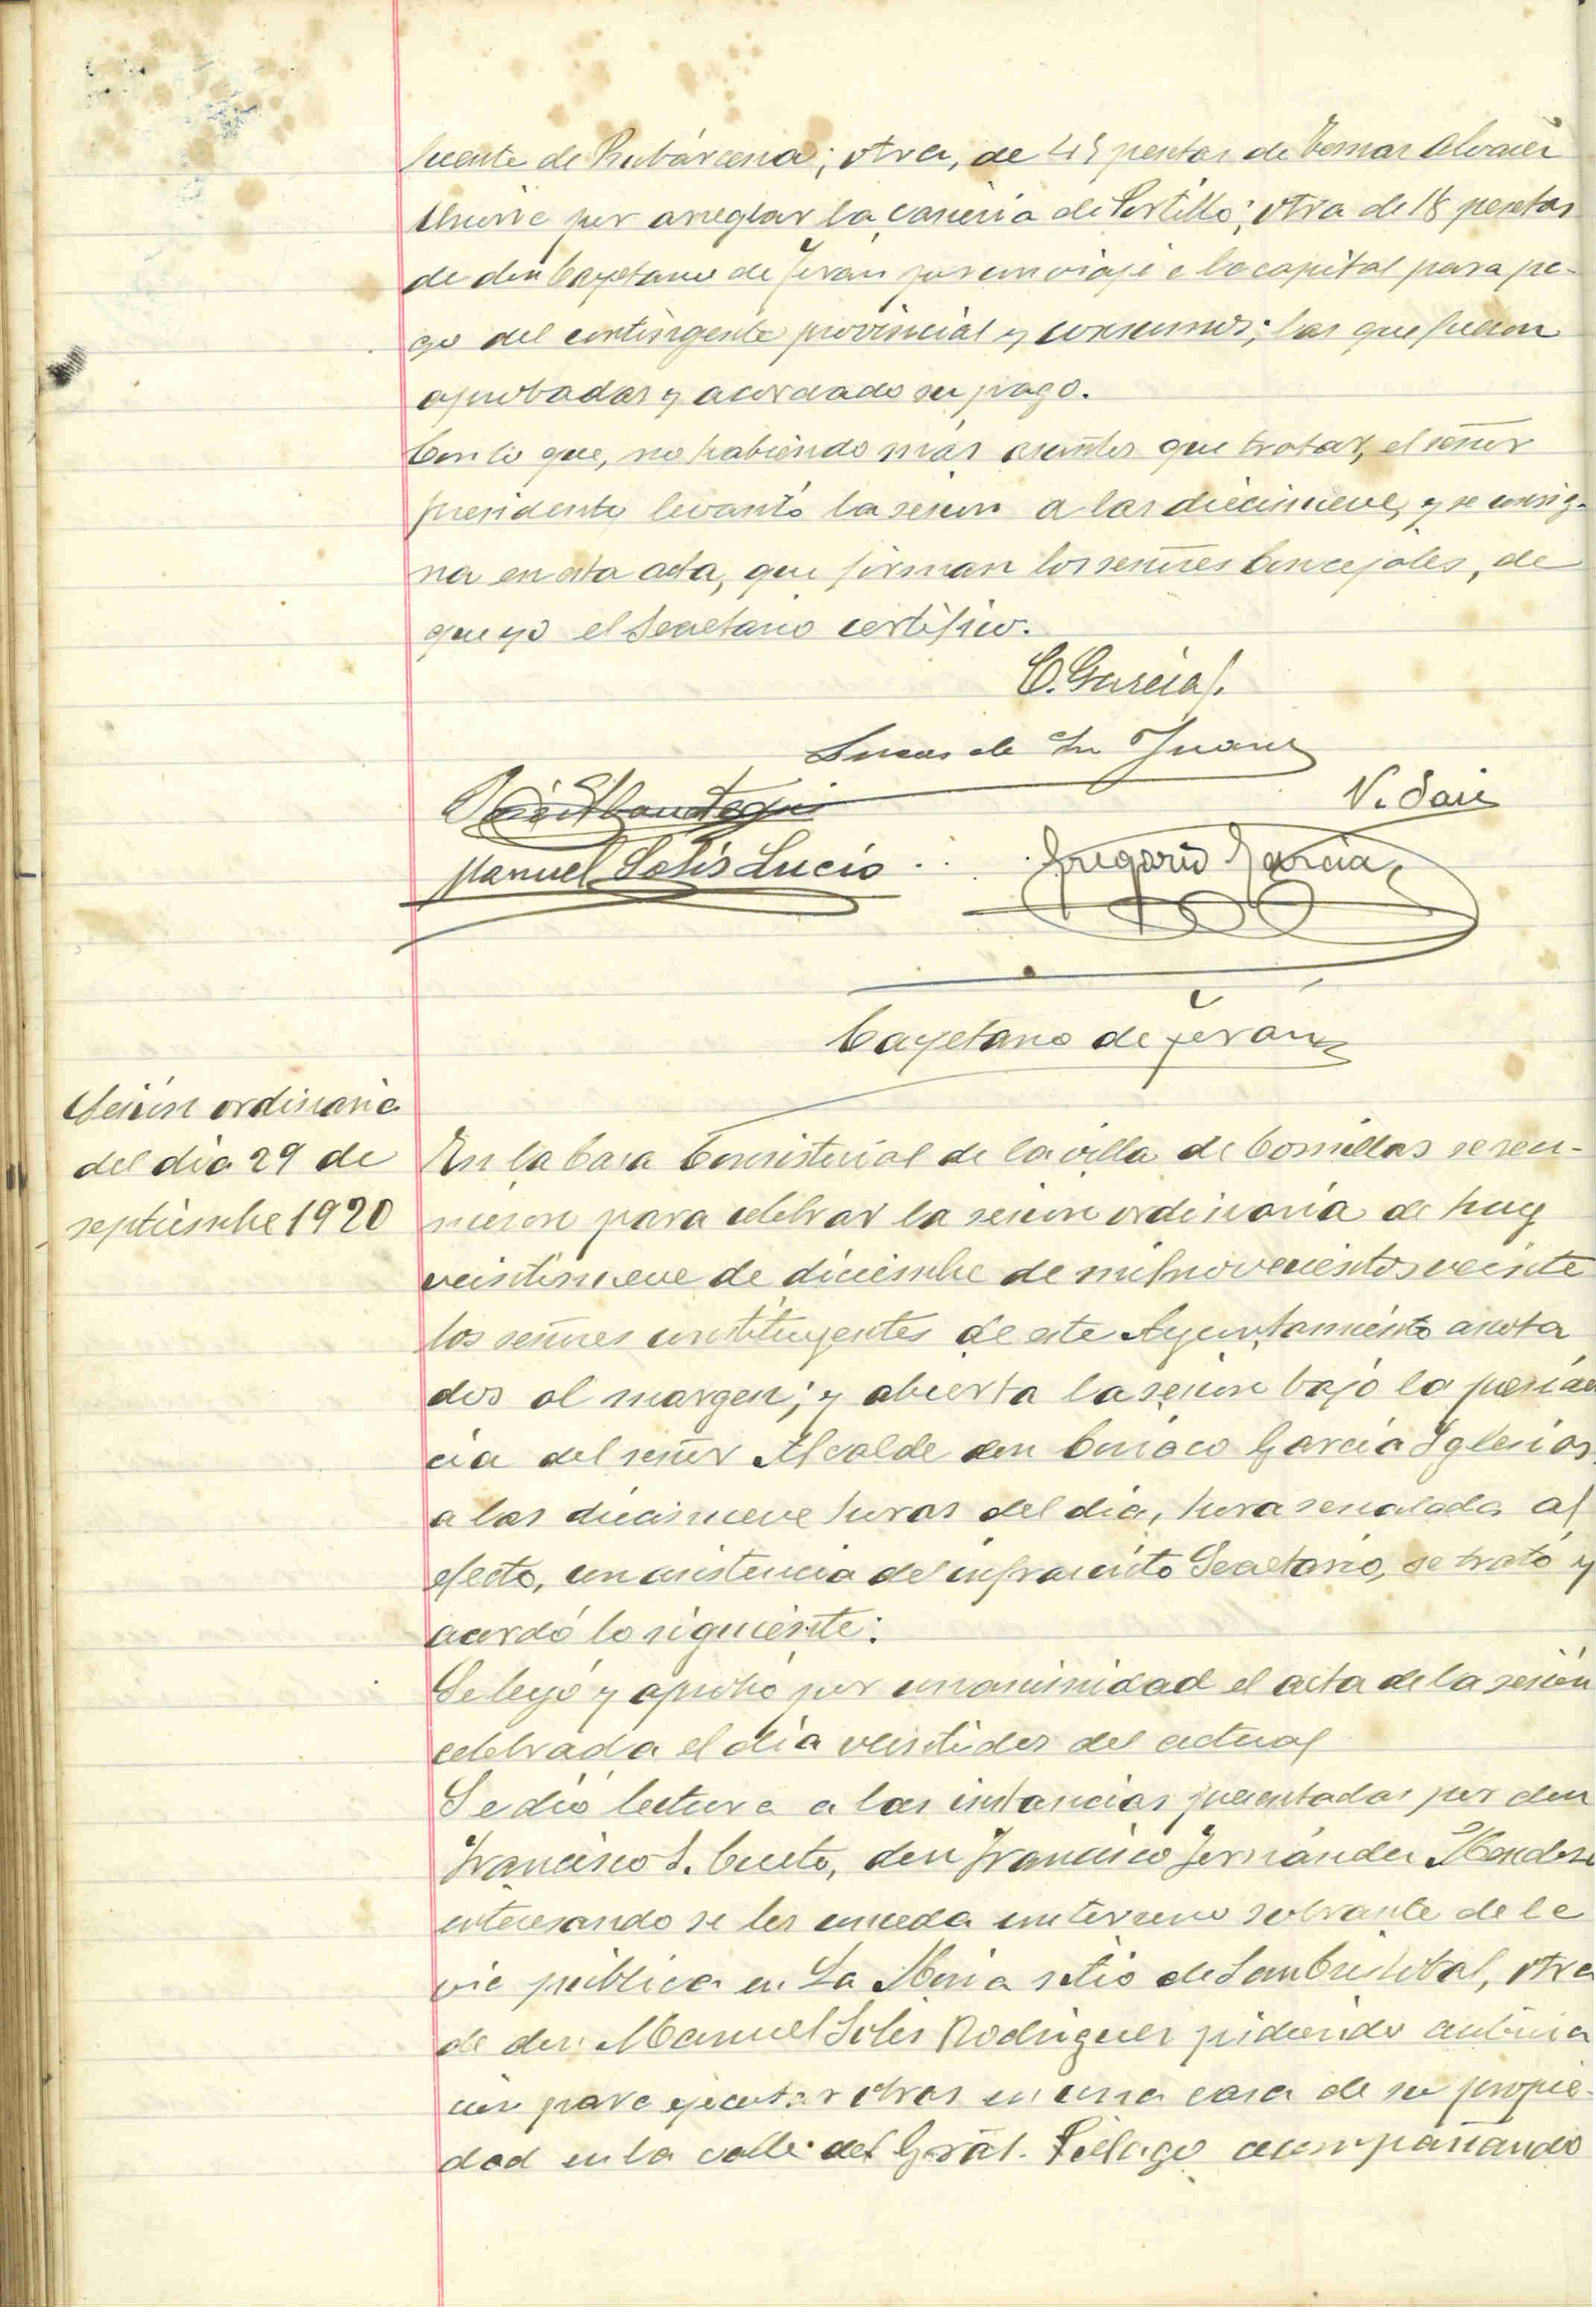 fuente de Rubárcena; otra, de 45 pesetas de Tomas Alvarez
por arreglar la cañería de Portillo; otra de 18 pesetas
de don Cayetano de Terán por un viaje a la capital para pa-
go del contingente provincial y consumos; las que fueron
aprobadas y acordado su pago.
Con lo que, no habiendo más asuntos que tratar, el señor
presidente levantó la sesión a las diecinueve, y se consig-
na en esta acta, que firman los señores Concejales, de
que yo el Secretario certifico.
C. García I.
Lucas de San Juan
N. Saiz
Manuel Solis Lucio
Gregorio Garcia
Cayetano de Terán
Sesión ordinaria
del dia 29 de
septiembre 1920
En la Casa Consistorial de la villa de Comillas se reu-
nieron para celebrar la sesión ordinaria de hoy
veintinueve de diciembre de mil novecientos veinte
los señores constituyentes de este Ayuntamiento anota
dos al margen; y abierta la sesión bajo la presiden
cia del señor Alcalde don Ciriaco García Iglesias
a las diecinueve horas del dia, hora senalada al
efecto, con asistencia del infrascrito Secretario, se trató y
acordó lo siguiente:
Se leyó y aprobó por unanimidad el acta de la sesión
celebrada el día veintidos del actual
Se dió lectura a las instancias presentadas por don
Francisco S. Cueto, don Francisco Fernández
interesando se les conceda un terreno sobrante de la
vía pública en La sitio de San Cristobal, otra
de don Manuel Solis Rodriguez pidiendo autoriza
ción para ejecutar obras en una casa de su propie-
dad en la calle del Gral. Piélago acompañando